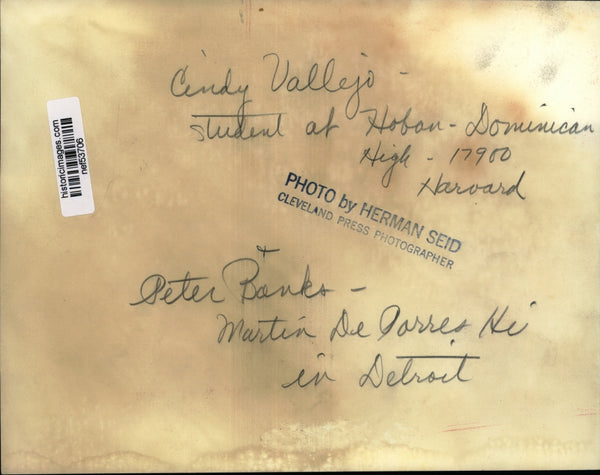 Cindy Vallejo -
student at Hoban - Dominican
High - 17900
Harvard
historicimages.com
nef53706
PHOTO by HERMAN SEID
CLEVELAND PRESS PHOTOGRAPHER
+
Peter Banks -
Martin De Porres Hi
in Detroit